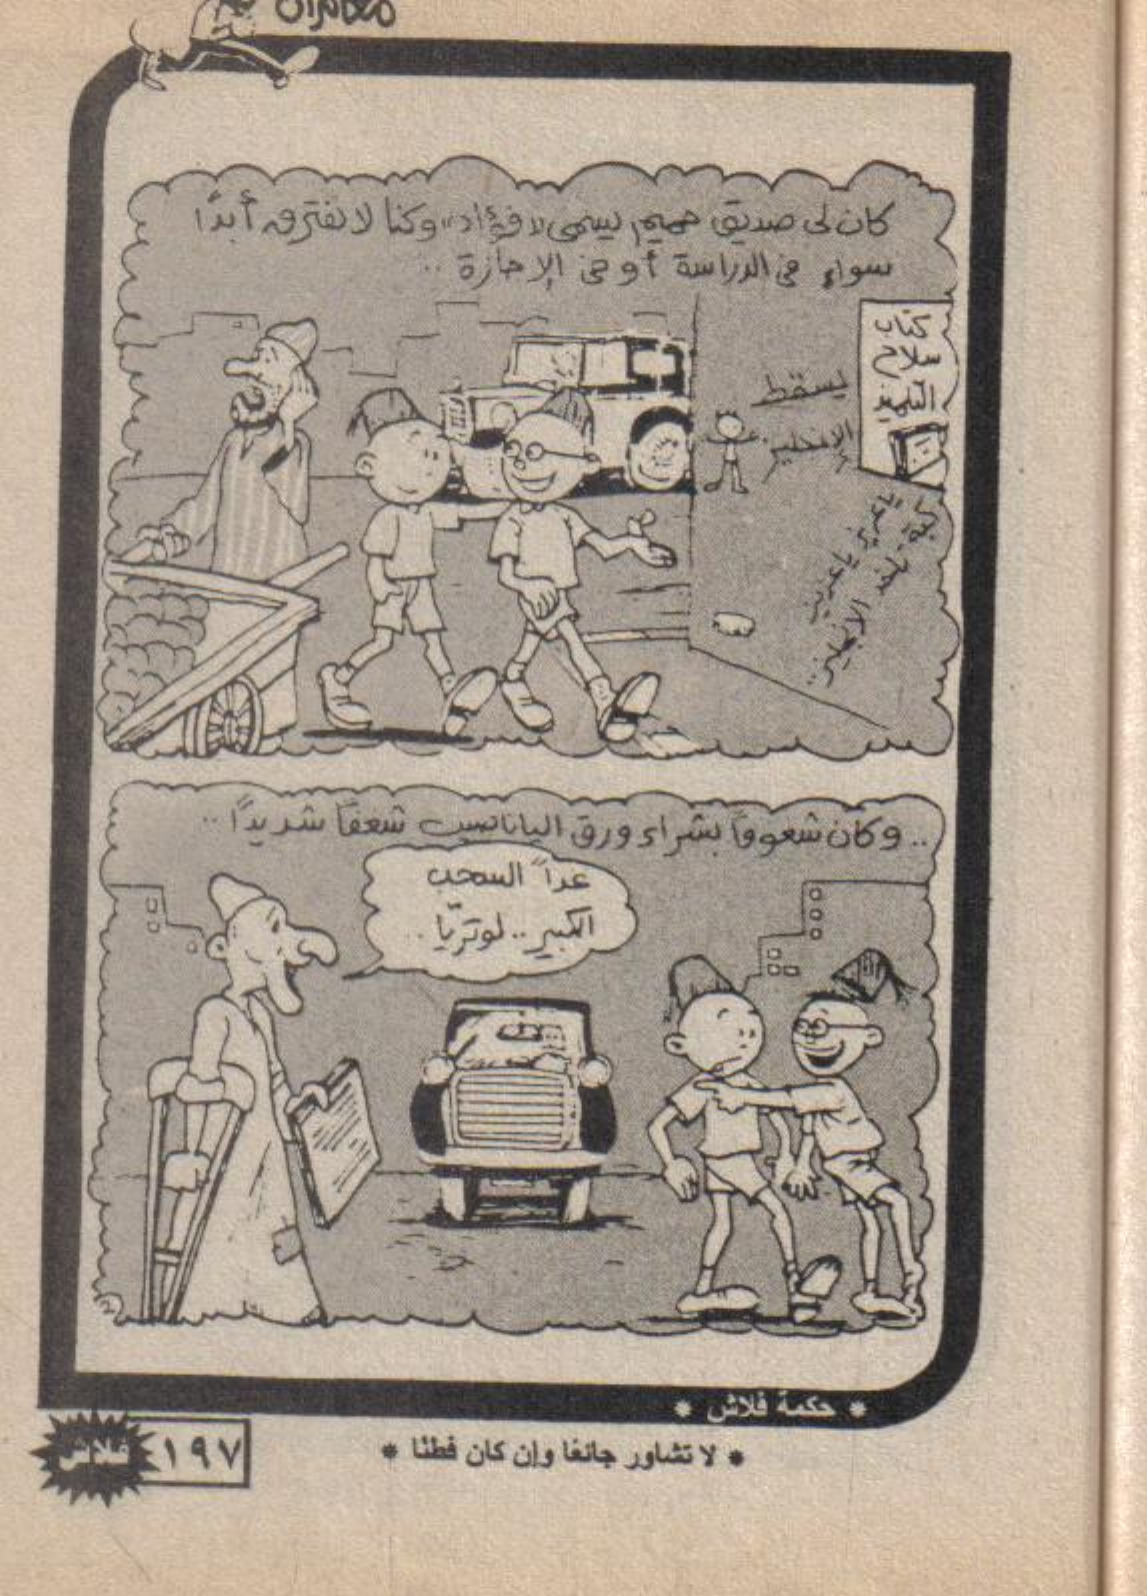 مغامرات
كان لى صديق حميم يسمى «فؤاد» وكنا لا نفترق أبدًا
سواء فى الدراسة أو فى الإجازة ..
كتاب
سلاح
التلميذ
يسقط
الإنجليز
يا عزيز يا عزيز
كبة تاخد الإنجليز
.. وكان شغوفاً بشراء ورق اليانصيب شغفاً شديداً ..
غداً السحب
الكبير .. لوتريّا ..
* حكمة فلاش *
* لا تشاور جائعًا وإن كان فطنًا *
١٩٧ فلاش